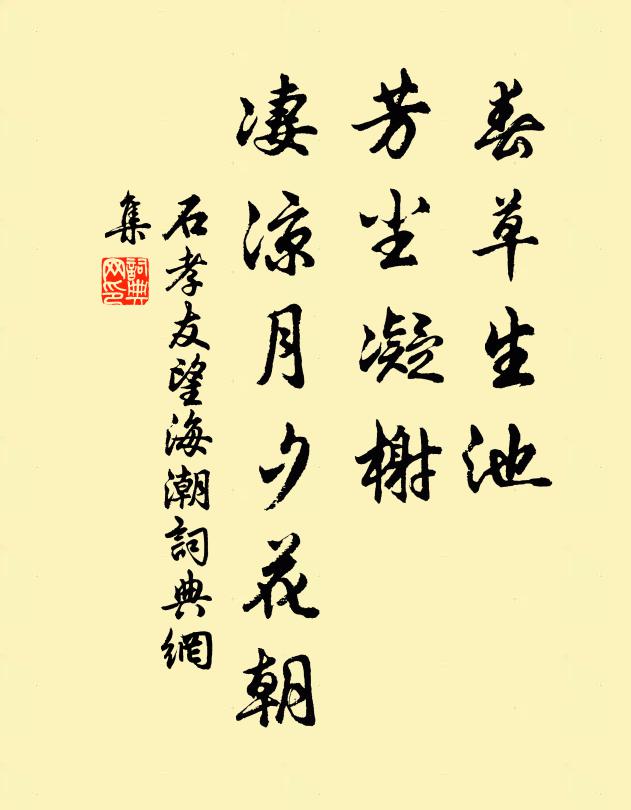 春草生池
芳尘凝榭
凄凉月夕花朝
石孝友望海潮詞典網
集
詞典网印